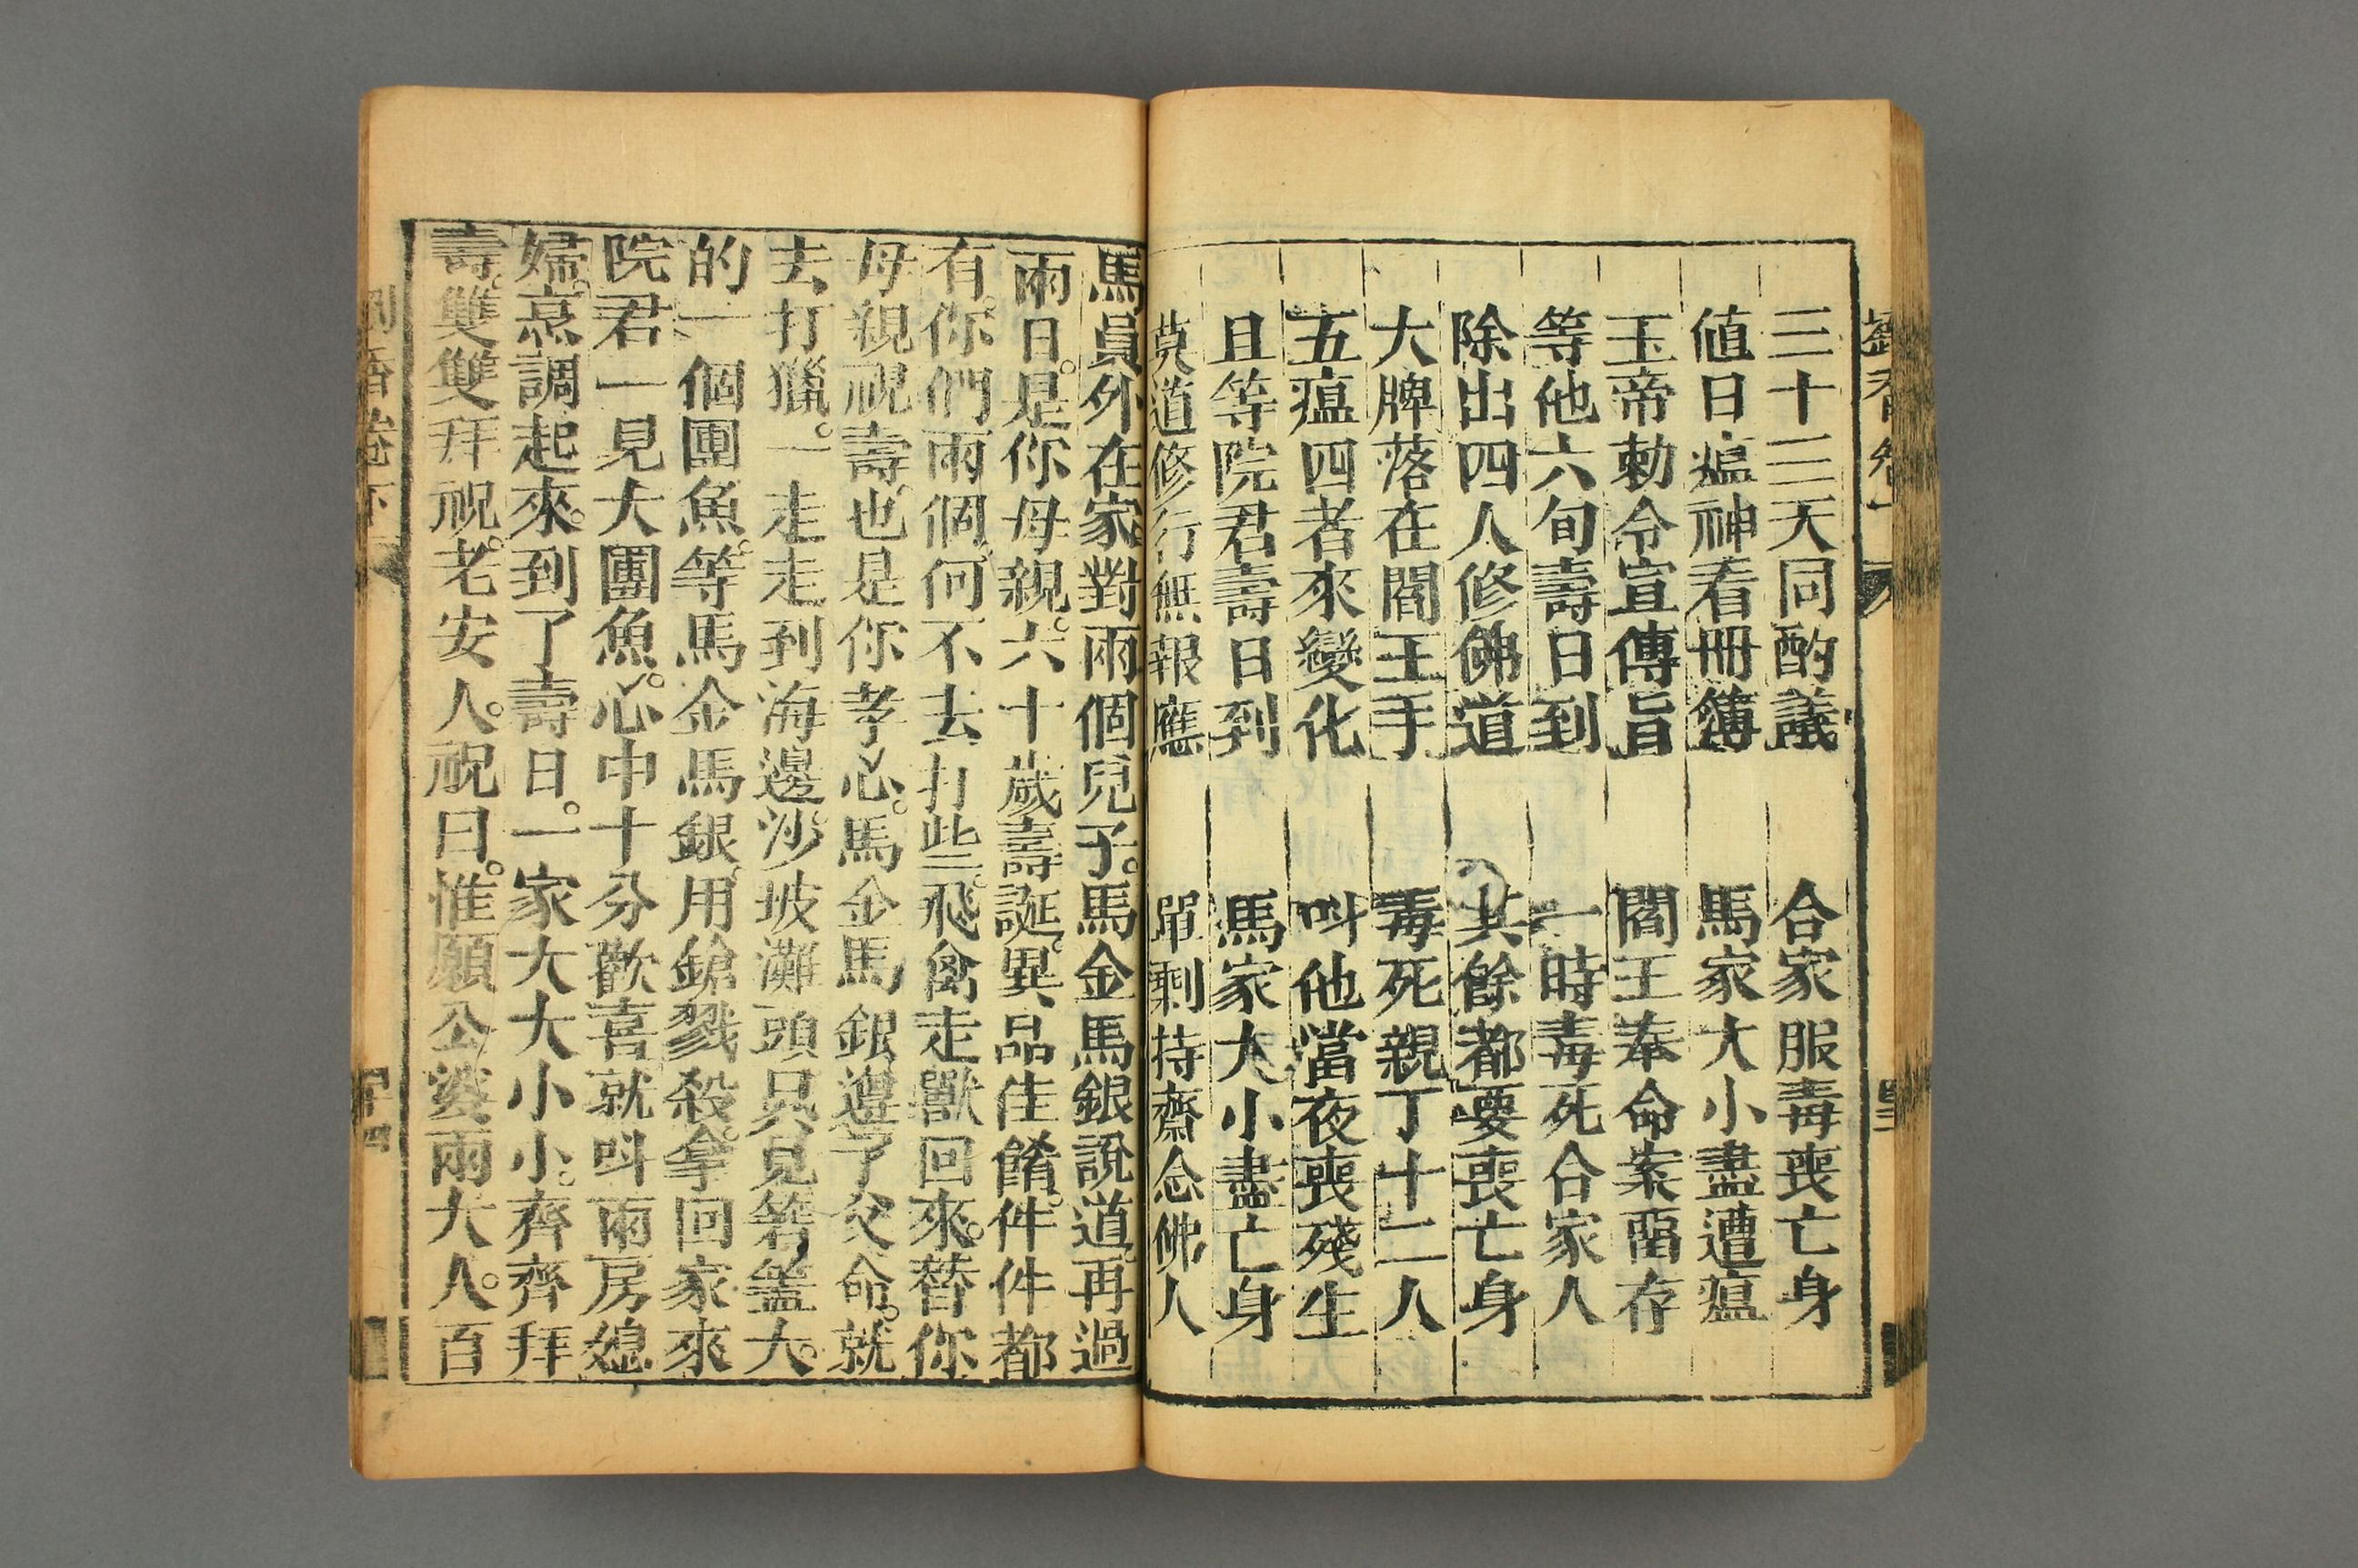 三十三天同酌議　合家服毒喪亡身
值日瘟神看冊簿　馬家大小盡遭瘟
玉帝勅令宣傳旨　閻王奉命案畱存
等他六旬壽日到　一時毒死合家人
除出四人修佛道　其餘都要喪亡身
大牌落在閻王手　毒死親丁十二人
五瘟四者來變化　呌他當夜喪殘生
且等院君壽日到　馬家大小盡亡身
莫道修行無報應　單剩持齋念佛人
馬員外在家。對兩個兒子。馬金馬銀說道。再過
兩日。是你母親。六十歲壽誕。異品佳餚。件件都
有。你們兩個。何不去打些。飛禽走獸回來。替你
母親祝壽。也是你孝心。馬金馬銀遵了父命。就
去打獵。一走走到海邊。沙坡灘頭只見箬盖大。
的一個團魚。等馬金馬銀。用鎗戮殺。拿回家來
院君一見大團魚。心中十分歡喜就呌兩房媳
婦。烹調起來。到了壽日。一家大大小小。齊齊拜
壽。雙雙拜祝。老安人。祝曰。惟願公婆兩大人。百